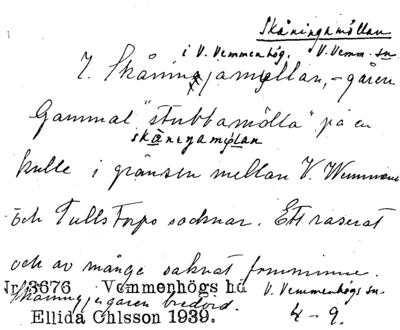 Skåningamöllan
i V. Vemmenhög. V. Vemm. sn
7. Skåningjamöllan, - gåren
Gammal "stubbamölla" på en
skåningamölan
kulle i gränsen mellan V. Wemmen
och Tullstorps socknar. Ett raserat
och av många saknat fornminne.
Nr 3676 Vemmenhögs hd V. Vemmenhögs sn.
Skåningjagåren bredvid.
Ellida Ohlsson 1939. 4 - 9.